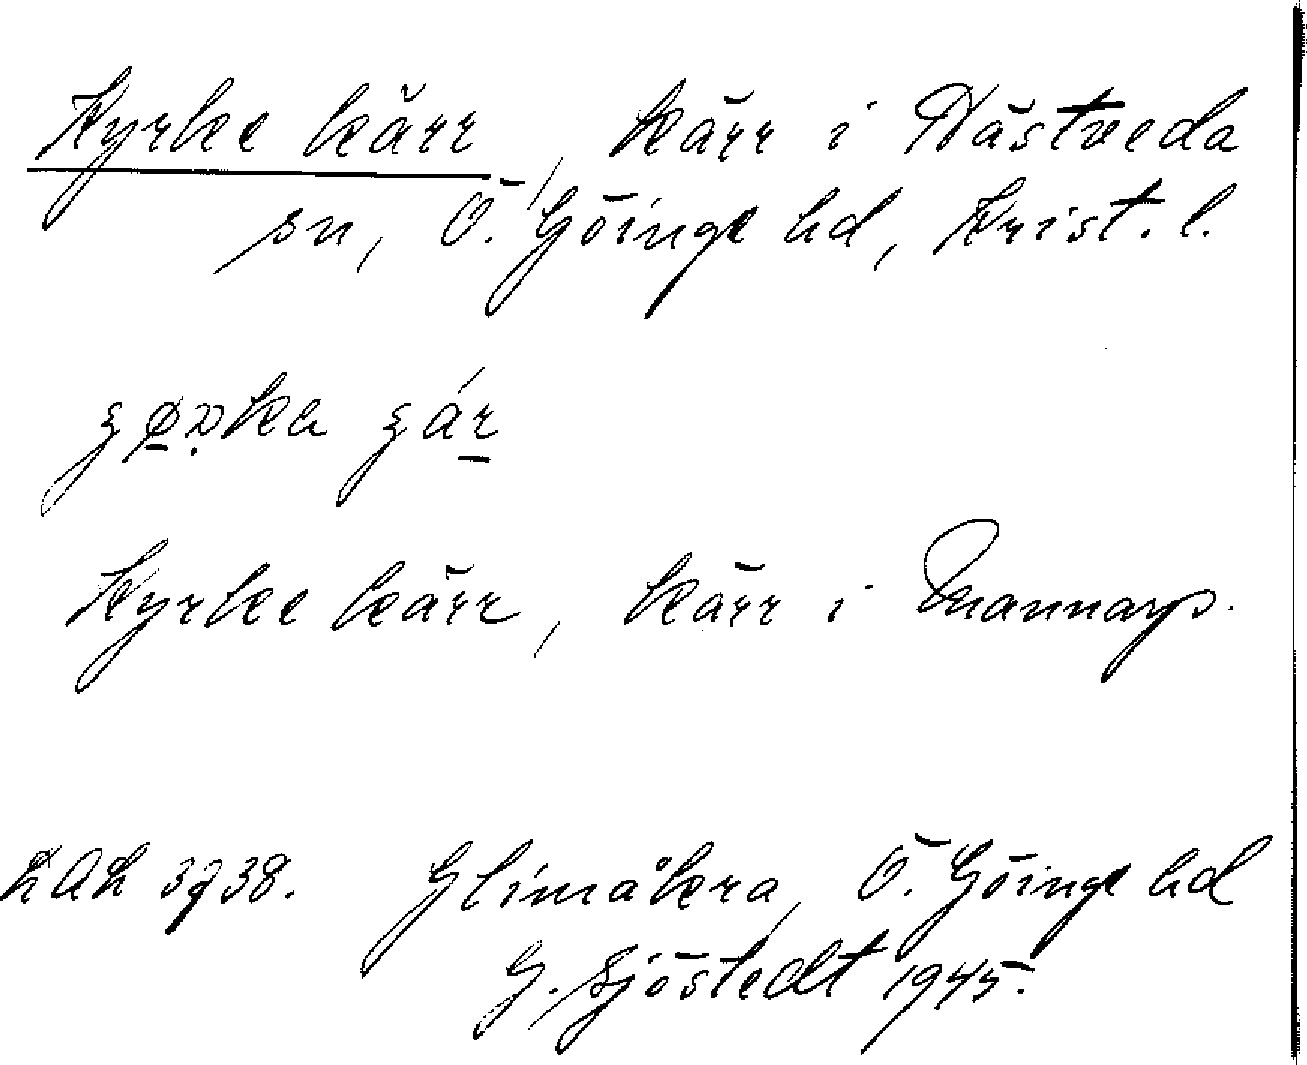 Kyrke kärr, kärr i Hästveda
sn, Ö. Göinge hd, Krist. l.
Kyrke kärr, kärr i Mannarp.
LAL 3738. Glimåkra, Ö. Göinge hd
G. Sjöstedt 1945.